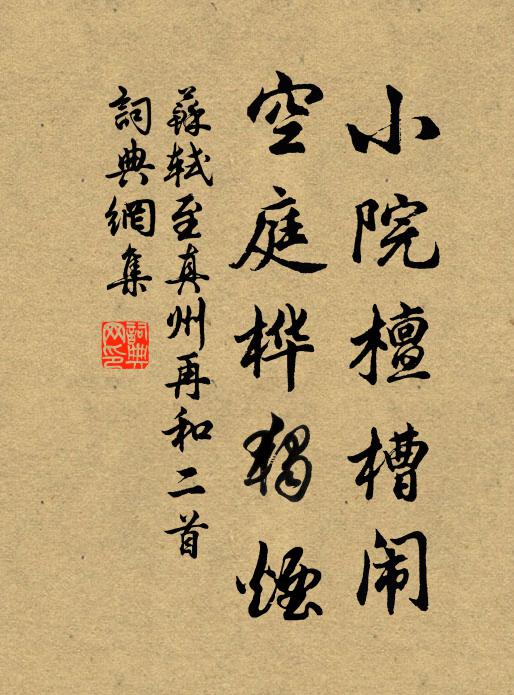 小院檀槽闹
空庭桦燭煙
蘇軾至真州再和二首
詞典網集
詞典网印